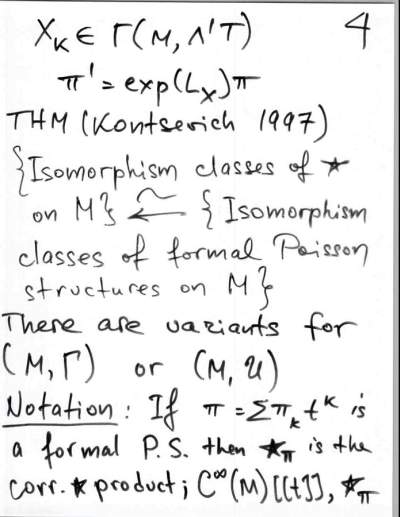 X_K ∈ Γ(M, Λ'T) 4
π' = exp(L_X)π
THM (Kontsevich 1997)
{Isomorphism classes of ★
on M} ⥲ { Isomorphism
classes of formal Poisson
structures on M}
There are variants for
(M, Γ) or (M, U)
Notation: If π = Σπ_k t^k is
a formal P.S. then ★_π is the
corr. ★ product; C^∞(M)[[t]], ★_π